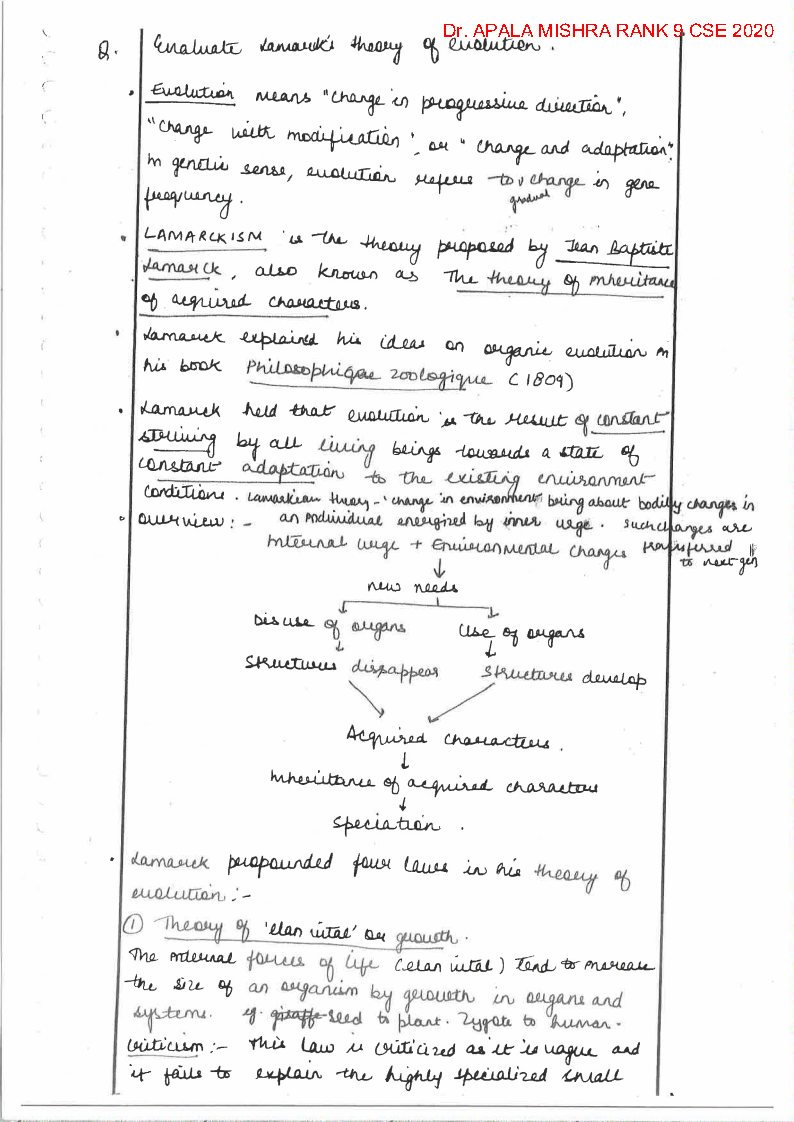 Dr. APALA MISHRA RANK 9 CSE 2020
Q. Evaluate Lamarck's theory of evolution.
• Evolution means "change in progressive direction",
"change with modification", or "change and adaptation".
In genetic sense, evolution refers to gradual change in gene
frequency.
• LAMARCKISM is the theory proposed by Jean Baptiste
Lamarck, also known as The theory of inheritance
of acquired characters.
• Lamarck explained his ideas on organic evolution in
his book Philosophique zoologique (1809)
• Lamarck held that evolution is the result of constant
striving by all living beings towards a state of
constant adaptation to the existing environment
conditions. Lamarkian theory - 'change in environment bring about bodily changes in
an individual energized by inner urge. Such changes are
transferred to next gen
• Overview :-
Internal urge + Environmental changes
↓
new needs
Disuse of organs Use of organs
↓ ↓
Structures disappear Structures develop
Acquired characters.
↓
Inheritance of acquired characters
↓
Speciation.
• Lamarck propounded four laws in his theory of
evolution :-
① Theory of 'elan vital' or growth.
The internal forces of life (elan vital) tend to increase
the size of an organism by growth in organs and
systems. eg. giraffe seed to plant. Zygote to human.
Criticism :- This law is criticized as it is vague and
it fails to explain the highly specialized small